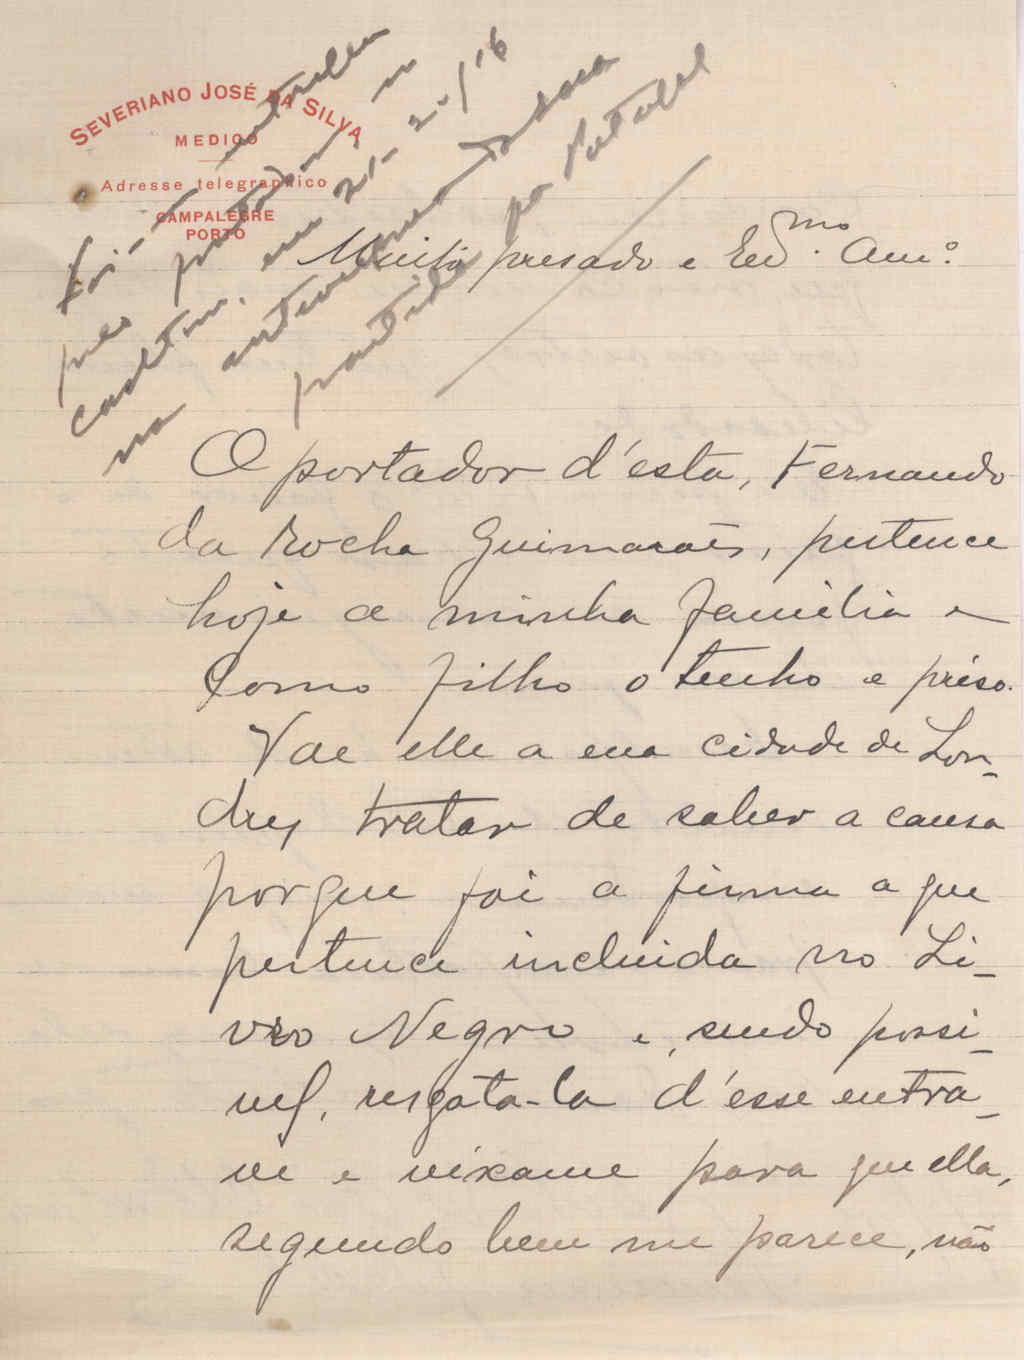 SEVERIANO JOSÉ DA SILVA
MEDICO
Adresse telegraphico
CAMPALEGRE
PORTO
Foi-
pelo portador
em 21-2-/16
na
partida pa
Muito presado e Ex.mo Am.o
O portador d'esta, Fernando
da Rocha Guimarães, pertence
hoje a minha familia e
como filho o tenho e préso.
Vae elle a essa cidade de Lon-
dres tratar de saber a causa
porque foi a firma a que
pertence incluida no Li-
vro Negro e, sendo possi-
vel, resgata-la d'esse entra-
ve e vexame para que ella,
segundo bem me parece, não